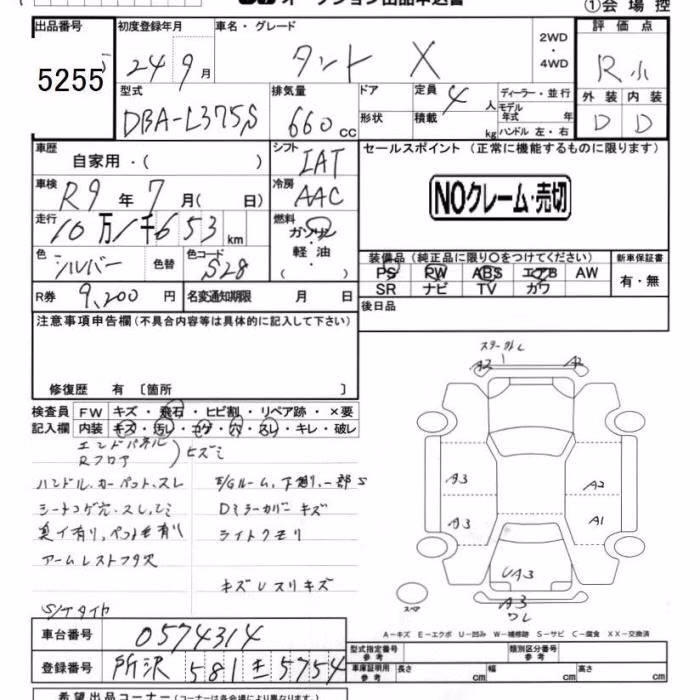 オークション出品申込書
①会場控
出品番号 5255
初度登録年月 24 9月
車名・グレード タント X
2WD・4WD
評価点 R
外装 D 内装 D
型式 DBA-L375S
排気量 660cc
ドア 形状
定員 4人 積載 kg
ディーラー・並行
モデル年式 年
ハンドル 左・右
車歴 自家用・( )
シフト IAT
セールスポイント(正常に機能するものに限ります)
NOクレーム・売切
車検 R9年 7月( 日)
冷房 AAC
走行 10万1千653km
燃料 ガソリン・軽油・( )
色 シルバー 色替 色コード S28
装備品(純正品に限り○をつけてください)
新車保証書 有・無
PS PW ABS エアB AW
SR ナビ TV カワ
R券 9,200円 名変通知期限 月 日
後日品
注意事項申告欄(不具合内容等は具体的に記入して下さい)
修復歴 有〔箇所 〕
検査員 FW キズ・飛石・ヒビ割・リペア跡・×要
記入欄 内装 キズ・汚レ・コゲ・穴・スレ・キレ・破レ
エンドパネル
Rフロア )ヒズミ
ハンドル、カーペット、スレ
E/Gルーム、下廻り、一部S
シートコゲ穴、スレ、シミ
Dミラーカバー キズ
臭イ有り、ペット毛有り
ライトクモリ
アームレストフタ欠
キズUスリキズ
S/Tタイヤ
A2 A2
A3 A2
A3 A1
UA3
A3
ワレ
スペア
A―キズ E―エクボ U―凹み W―補修跡 S―サビ C―腐食 XX―交換済
車台番号 0574314
型式指定番号 参考 類別区分番号 参考
登録番号 所沢 581 5754
車庫証明用 参考 長さ cm 幅 cm 高さ cm
希望出品コーナー(コーナーは各会場により異なります)